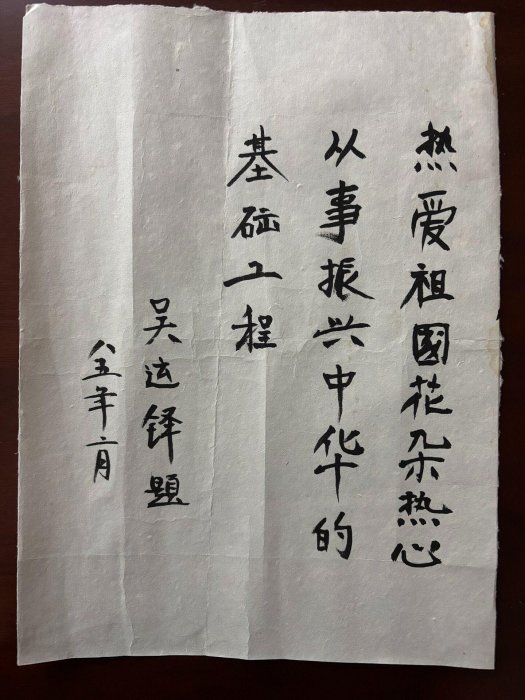 热爱祖國花朵热心
从事振兴中华的
基础工程
吴运铎题
八五年二月